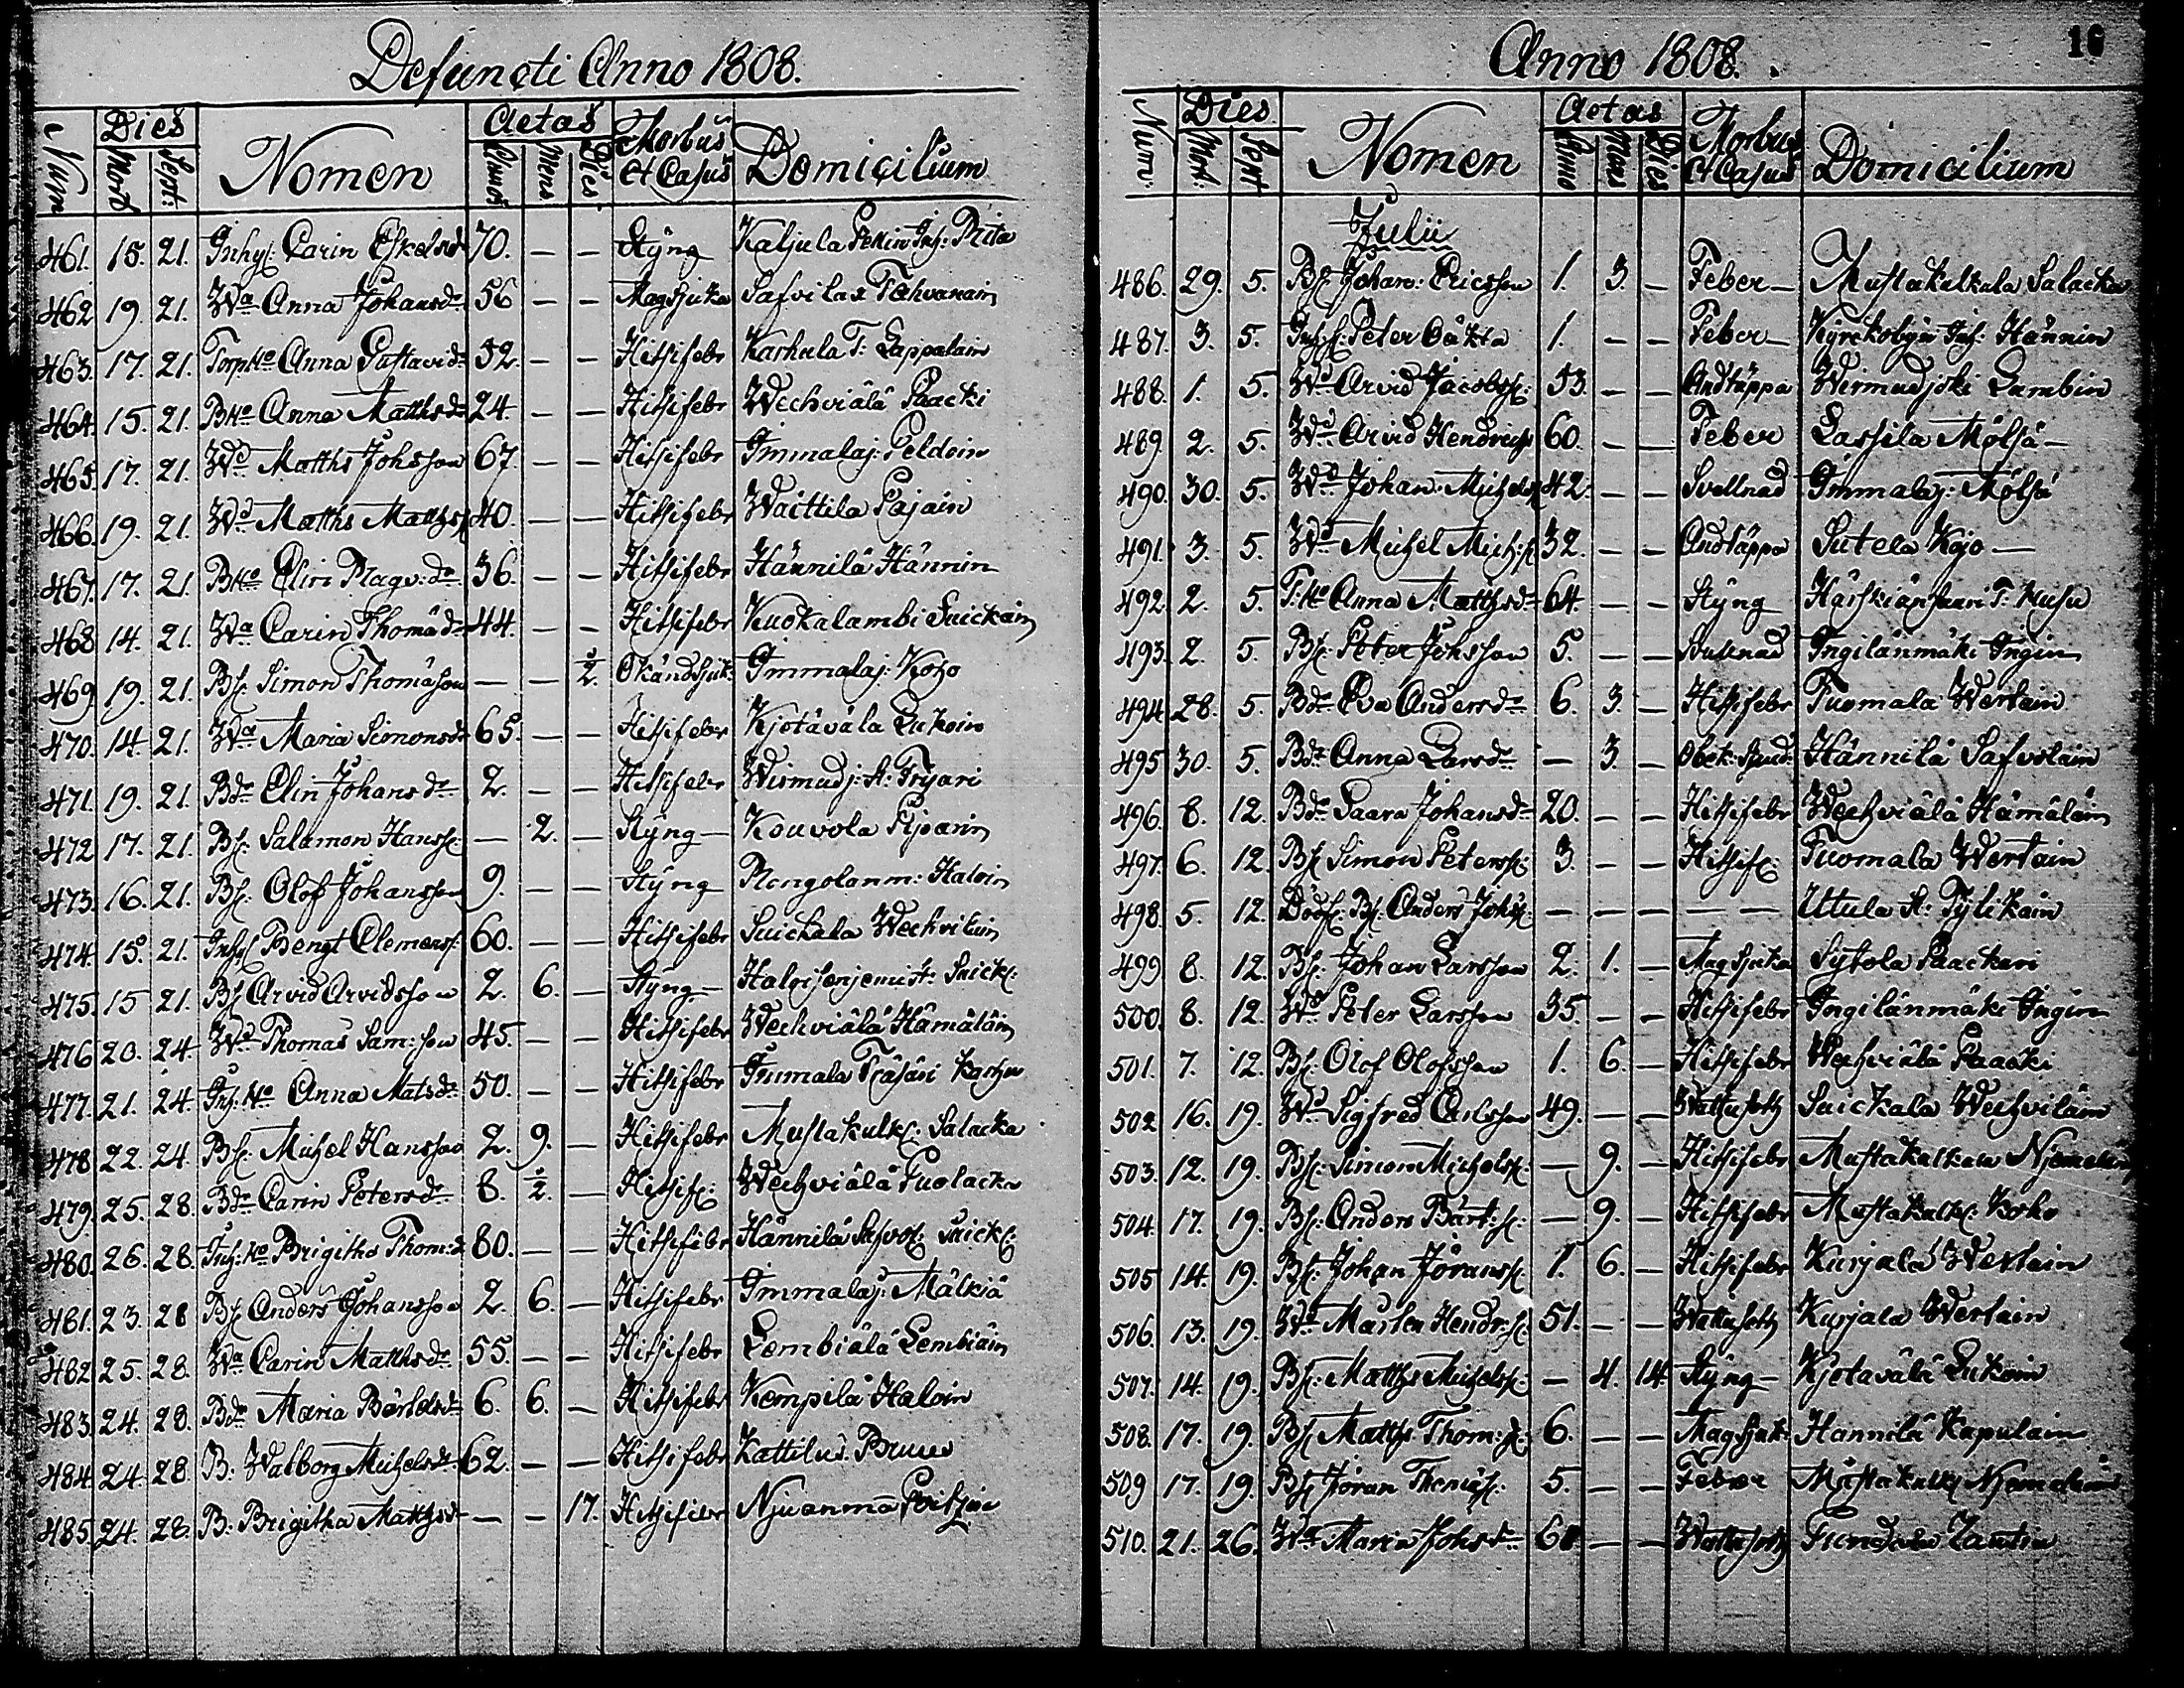 Defuncti Anno 1808.
Num Dies Mort Sept: Nomen Aetas Annos Mens Dies Morbus et Casus Domicilium
461. 15. 21. Inhys: Carin Eskelsd: 70. — — Styng Kaljula Pekin Inh: Rita
462 19. 21. Wa Anna Johansdr 56 — — Magsjuka Safvilax Tahvanain
463. 17. 21. Torp:Ho Anna Gustavsdr 52. — — Hitsifebr Karhula T: Lappalain
464. 15. 21. BHo Anna Matthsdr 24 — — Hitsifebr Wechviälä Paacki
465. 17. 21. Wd Matths Johsson 67. — — Hitsifebr Immalaj: Peldoin
466. 19. 21. Wd Matths Matthss: 40. — — Hitsifebr Waittila Pajain
467. 17. 21. BHo Elin Magn:dr 36. — — Hitsifebr Hännilä Hännin
468 14. 21. Wa Carin Thomædr 44. — — Hitsifebr Kuokalambi Suickain
469 19. 21. Bs: Simon Thomason — — ½. Okändsjuk: Immalaj: Koho
470. 14 21. Wa Maria Simonsdr 65. — — Hitsifebr Kjotävälä Lukoin
471. 19. 21. Bdr Elin Johansdr 2. — — Hitsifebr Wirmudj: A: Tryari
472 17. 21. Bs: Salamon Hanss: — 2. — Styng — Kouvola Piparin
473. 16. 21. Bs: Olof Johansson 9. — — Styng Rongolanm: Haloin
474. 15. 21. Inhys Bengt Clemenss: 60. — — Hitsifebr Suickala Wechvilain
475. 15 21. Bs Arvid Arvidsson 2. 6. — Styng — Haloisenjemi A: Suick:
476 20. 24. Wd Thomas Sam:son 45. — — Hitsifebr Wechviälä Hämäläin
477. 21. 24. Inh:Ho Anna Matsdr 50. — — Hitsifebr Tiumala Karhu
478 22. 24. Bs: Michel Hansson 2. 9. — Hitsifebr Mustakulk: Salacka
479. 25. 28. Bdr Carin Petersdr 8. ½. — Hitsif: Wechviälä Puolacka
480. 26. 28. Inh:Ho Brigitha Thom:d 80. — — Hitsifebr Hännilä Safvol: Suick:
481. 23. 28 Bs Anders Johansson 2. 6. — Hitsifebr Immalaj: Mälkiä
482 25. 28. Wa Carin Matthsdr 55. — — Hitsifebr Lembiälä Lembiäin
483. 24. 28. Bdr Maria Bärtelsdr 6. 6. — Hitsifebr Kempilä Haloin
484. 24. 28. B: Walborg Michelsdr 62. — — Hitsifebr Kattilus: Bruus
485. 24. 28. B: Brigitha Matthsdr — — 17. Hitsifebr Njuanmä Poitzin
Anno 1808. 16
Num: Dies Mort: Sept Nomen Aetas Anno Mens Dies Morbus et Casus Domicilium
Julii
486. 29. 5. Bs: Johan: Ericsson 1. 3. — Feber — Mustakulkala Salacka
487. 3. 5. Inh:s: Peter 1. — — Feber — Kyrckobyn Inh: Hännin
488. 1. 5. Wd Arvid Jacobss: 53. — — Andtäppa Wirmudjoki Lambin
489. 2. 5. Wd Arvid Hendricss 60. — — Feber Lassila Möljä —
490. 30. 5. Wd Johan: Michelss 42. — — Svellnad Immalaj: Möljä
491. 3. 5. Wd Michel Mich:s: 32. — — Andtäppa Sutela Kojo —
492. 2. 5. T:Ho Anna Matthsdr 64. — — Styng Härskiänsaari T: Kusu
493. 2. 5. Bs: Peter Johsson 5. — — Svulnad Ingilänmäki Ingin
494 28. 5. Bdr Eva Andersdr 6. 3. — Hitsifebr Tuomala Wertain
495 30. 5. Bdr Anna Larsdr — 3. — Obek: sjuk Hännilä Safvolain
496. 8. 12. Bdr Saara Johansdr 20. — — Hitsifebr Wechviälä Hämäläin
497. 6. 12. Bs Simon Peterss: 3. — — Hitsif: Tuomala Wertain
498. 5. 12. Dödf: Bs: Anders Johss: — — — — — Uttula A: Pylikäin
499 8. 12. Bs: Johan Larsson 2. 1. — Magsjuka Sytola Paackari
500. 8. 12. Wd Peter Larsson 35. — — Hitsifebr Ingilänmäki Ingin
501. 7. 12. Bs: Olof Olofsson 1. 6. — Hitsifebr Wechviälä Paacki
502 16. 19. Wd Sigfred Carlsson 49. — — Wattusoth Suickala Wechviläin
503. 12. 19. Bs: Simon Michelss: — 9. — Hitsifebr Mustakulkala Njemeläin
504. 17. 19. Bs: Anders Bärt:s: — 9. — Hitsifebr Mustakulk: Koho
505 14. 19. Bs: Johan Jöranss: 1. 6. — Hitsifebr Kurjala Wertain
506. 13. 19. Wd Mårten Hendr:s: 51. — — Wattusoth Kurjala Wertain
507. 14. 19. Bs: Matths Michelss: — 4. 14 Styng — Kjotävälä Lukoin
508. 17. 19. Bs: Matths Thom:s: 6. — — Magsjuk: Hännilä Kapulain
509 17. 19. Bs Jöran Thomæs: 5. — — Feber Mustakulk: Njemeläin
510. 21. 26. Wa Maria Johsdr 60 — — Wattusoth Lautin